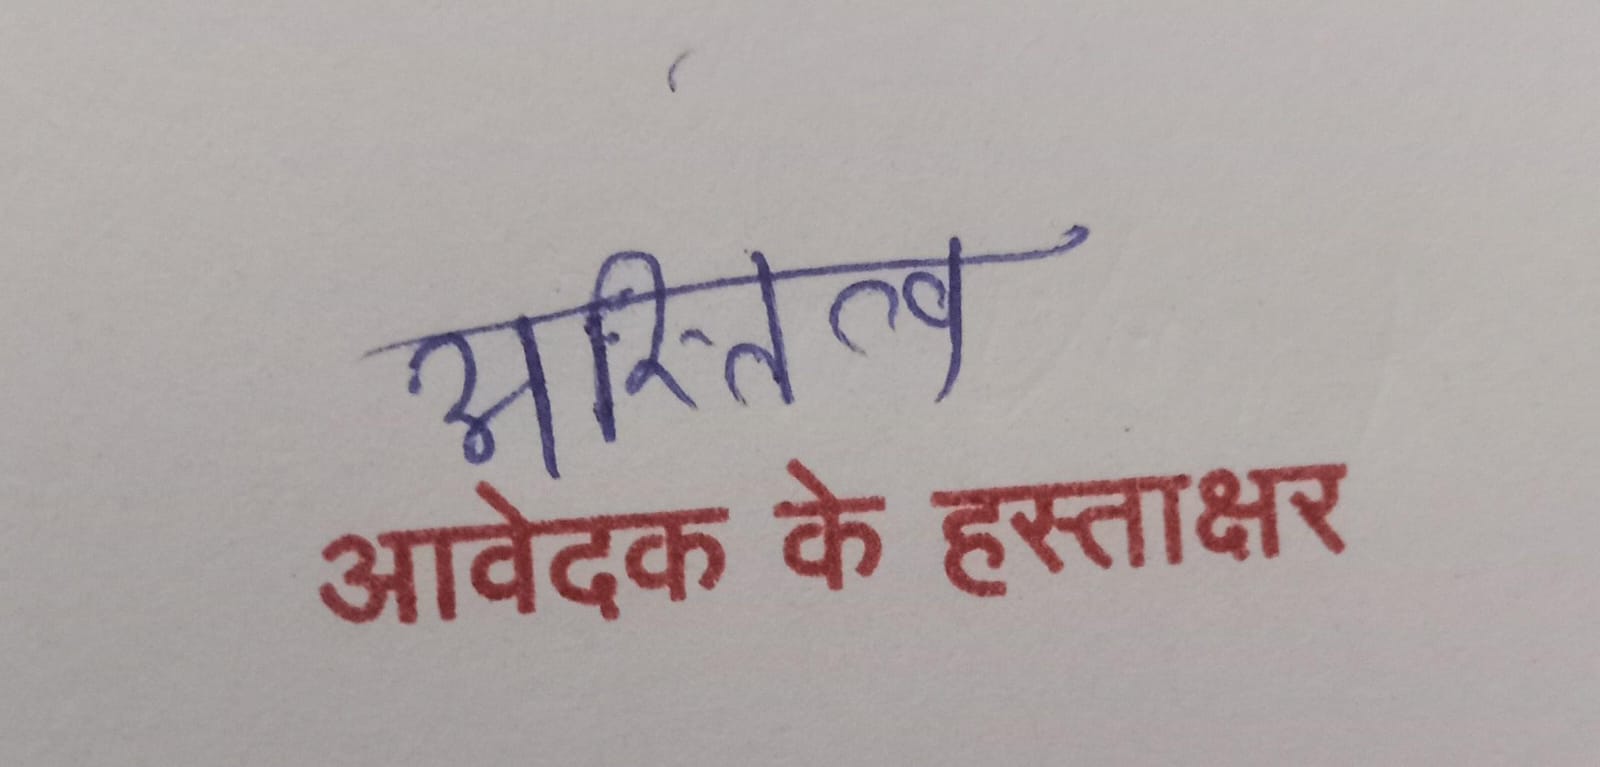 अस्तित्व
आवेदक के हस्ताक्षर